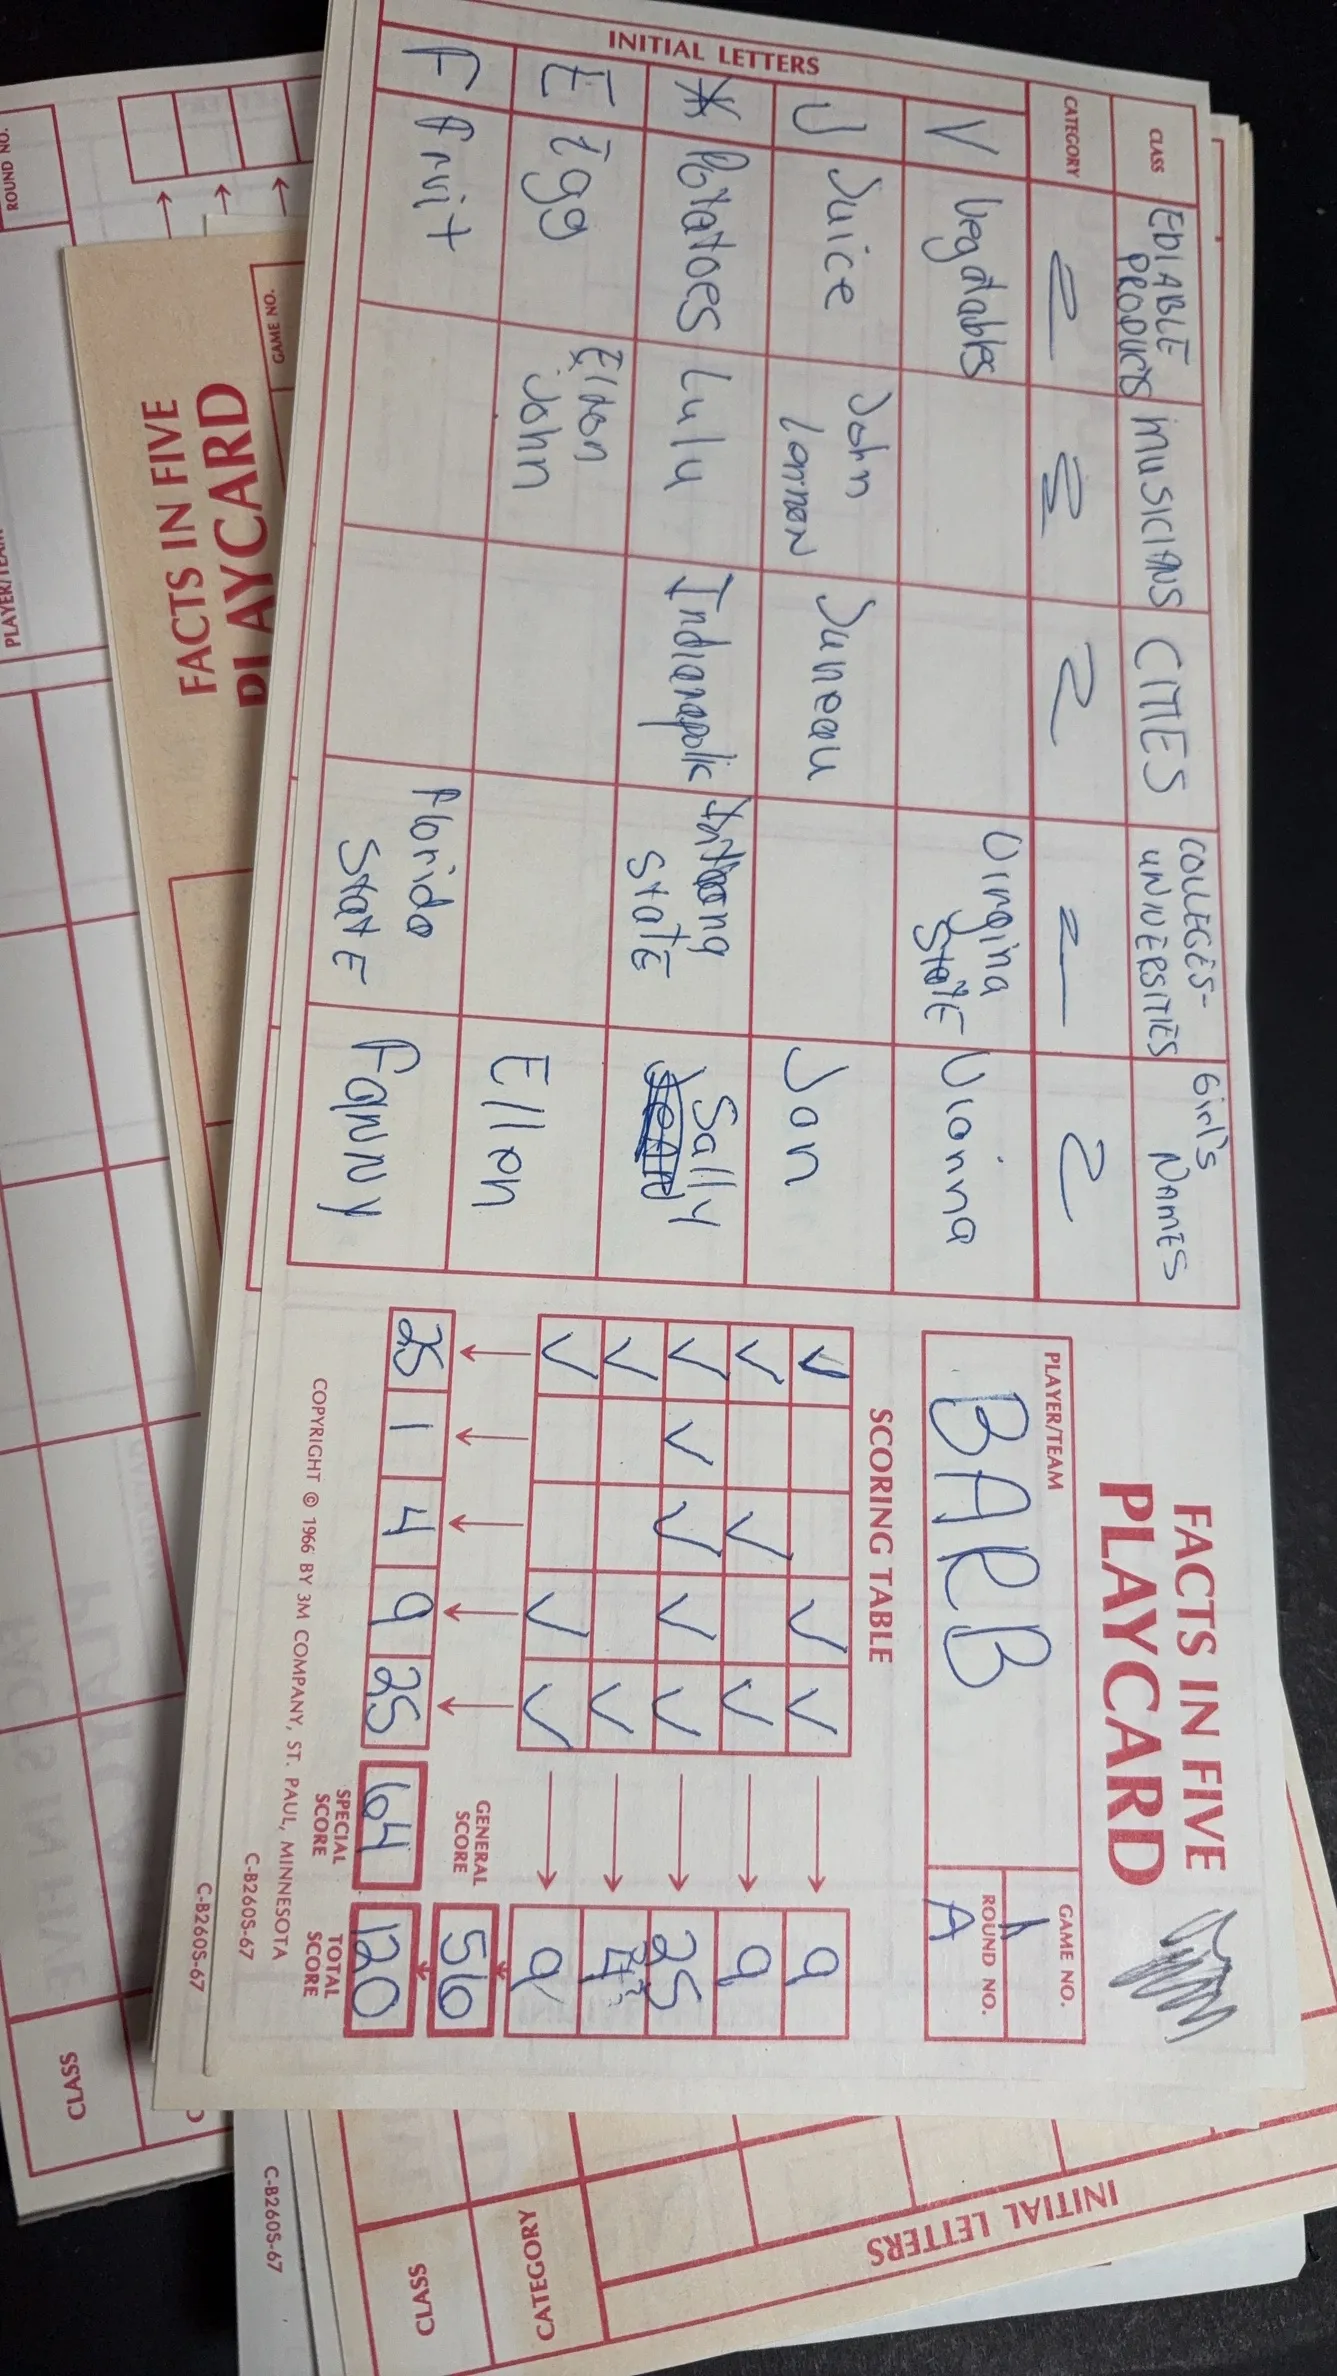 FACTS IN FIVE
PLAYCARD
PLAYER/TEAM
BARB
GAME NO.
1
ROUND NO.
A
CLASS
EDIABLE
PRODUCTS
MUSICIANS
CITIES
COLLEGES-
UNIVERSITIES
Girl's
NAMES
CATEGORY
INITIAL LETTERS
V
Vegatables
Virgina
State
Viaina
J
Juice
John
Lannon
Juneau
Jan
*
Potatoes
Lulu
Indianapolic
State
Sally
E
Egg
Elton
John
Ellen
F
Fruit
Florida
State
Fanny
SCORING TABLE
9
9
25
9
GENERAL
SCORE
56
25 1 4 9 25
64
SPECIAL
SCORE
120
TOTAL
SCORE
COPYRIGHT © 1966 BY 3M COMPANY, ST. PAUL, MINNESOTA
C-B260S-67
C-B260S-67
C-B260S-67
FACTS IN FIVE
PLAYCARD
GAME NO.
ROUND NO.
PLAYER/TEAM
CLASS
CLASS
CATEGORY
INITIAL LETTERS